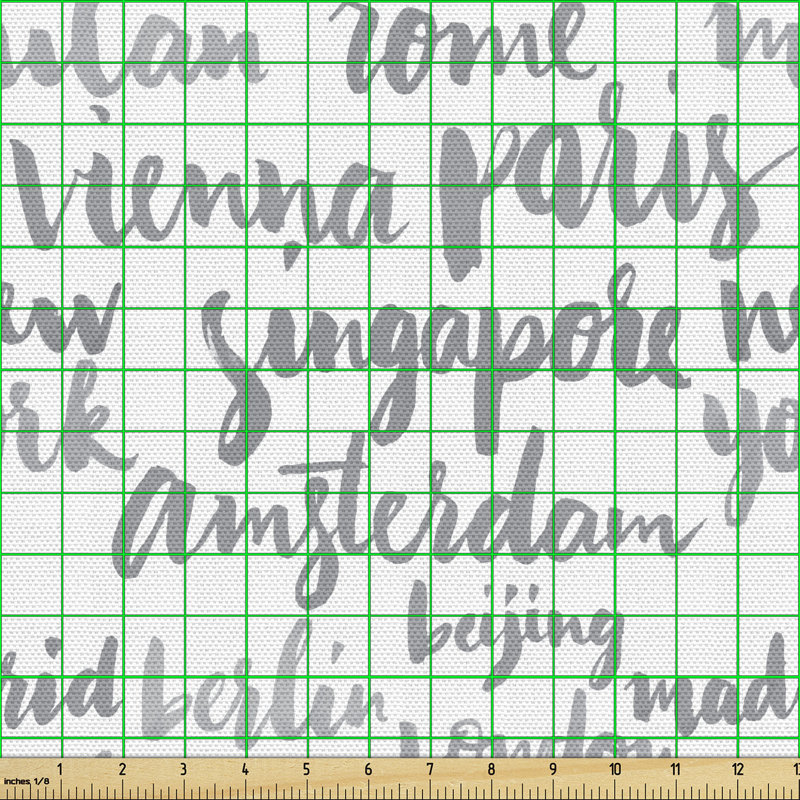 milan rome m
vienna paris
ew singapore ne
ork yo
amsterdam
beijing
rid berlin mad
london
1 2 3 4 5 6 7 8 9 10 11 12 13
inches, 1/8